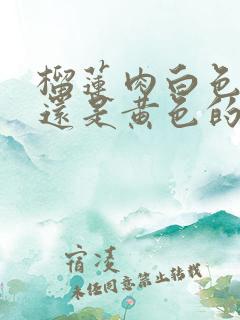 榴莲肉白色
還是黄色的
宿凌
未经同意禁止转载